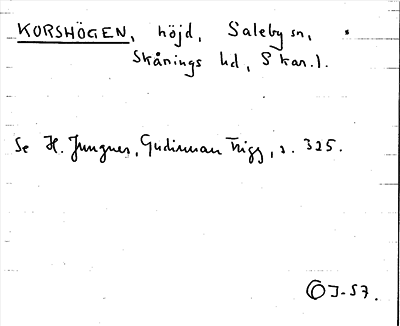 KORSHÖGEN, höjd, Saleby sn,
Skånings hd, Skar.l.
Se H. Jungner, Gudinnan Frigg, s. 325.
J-57.